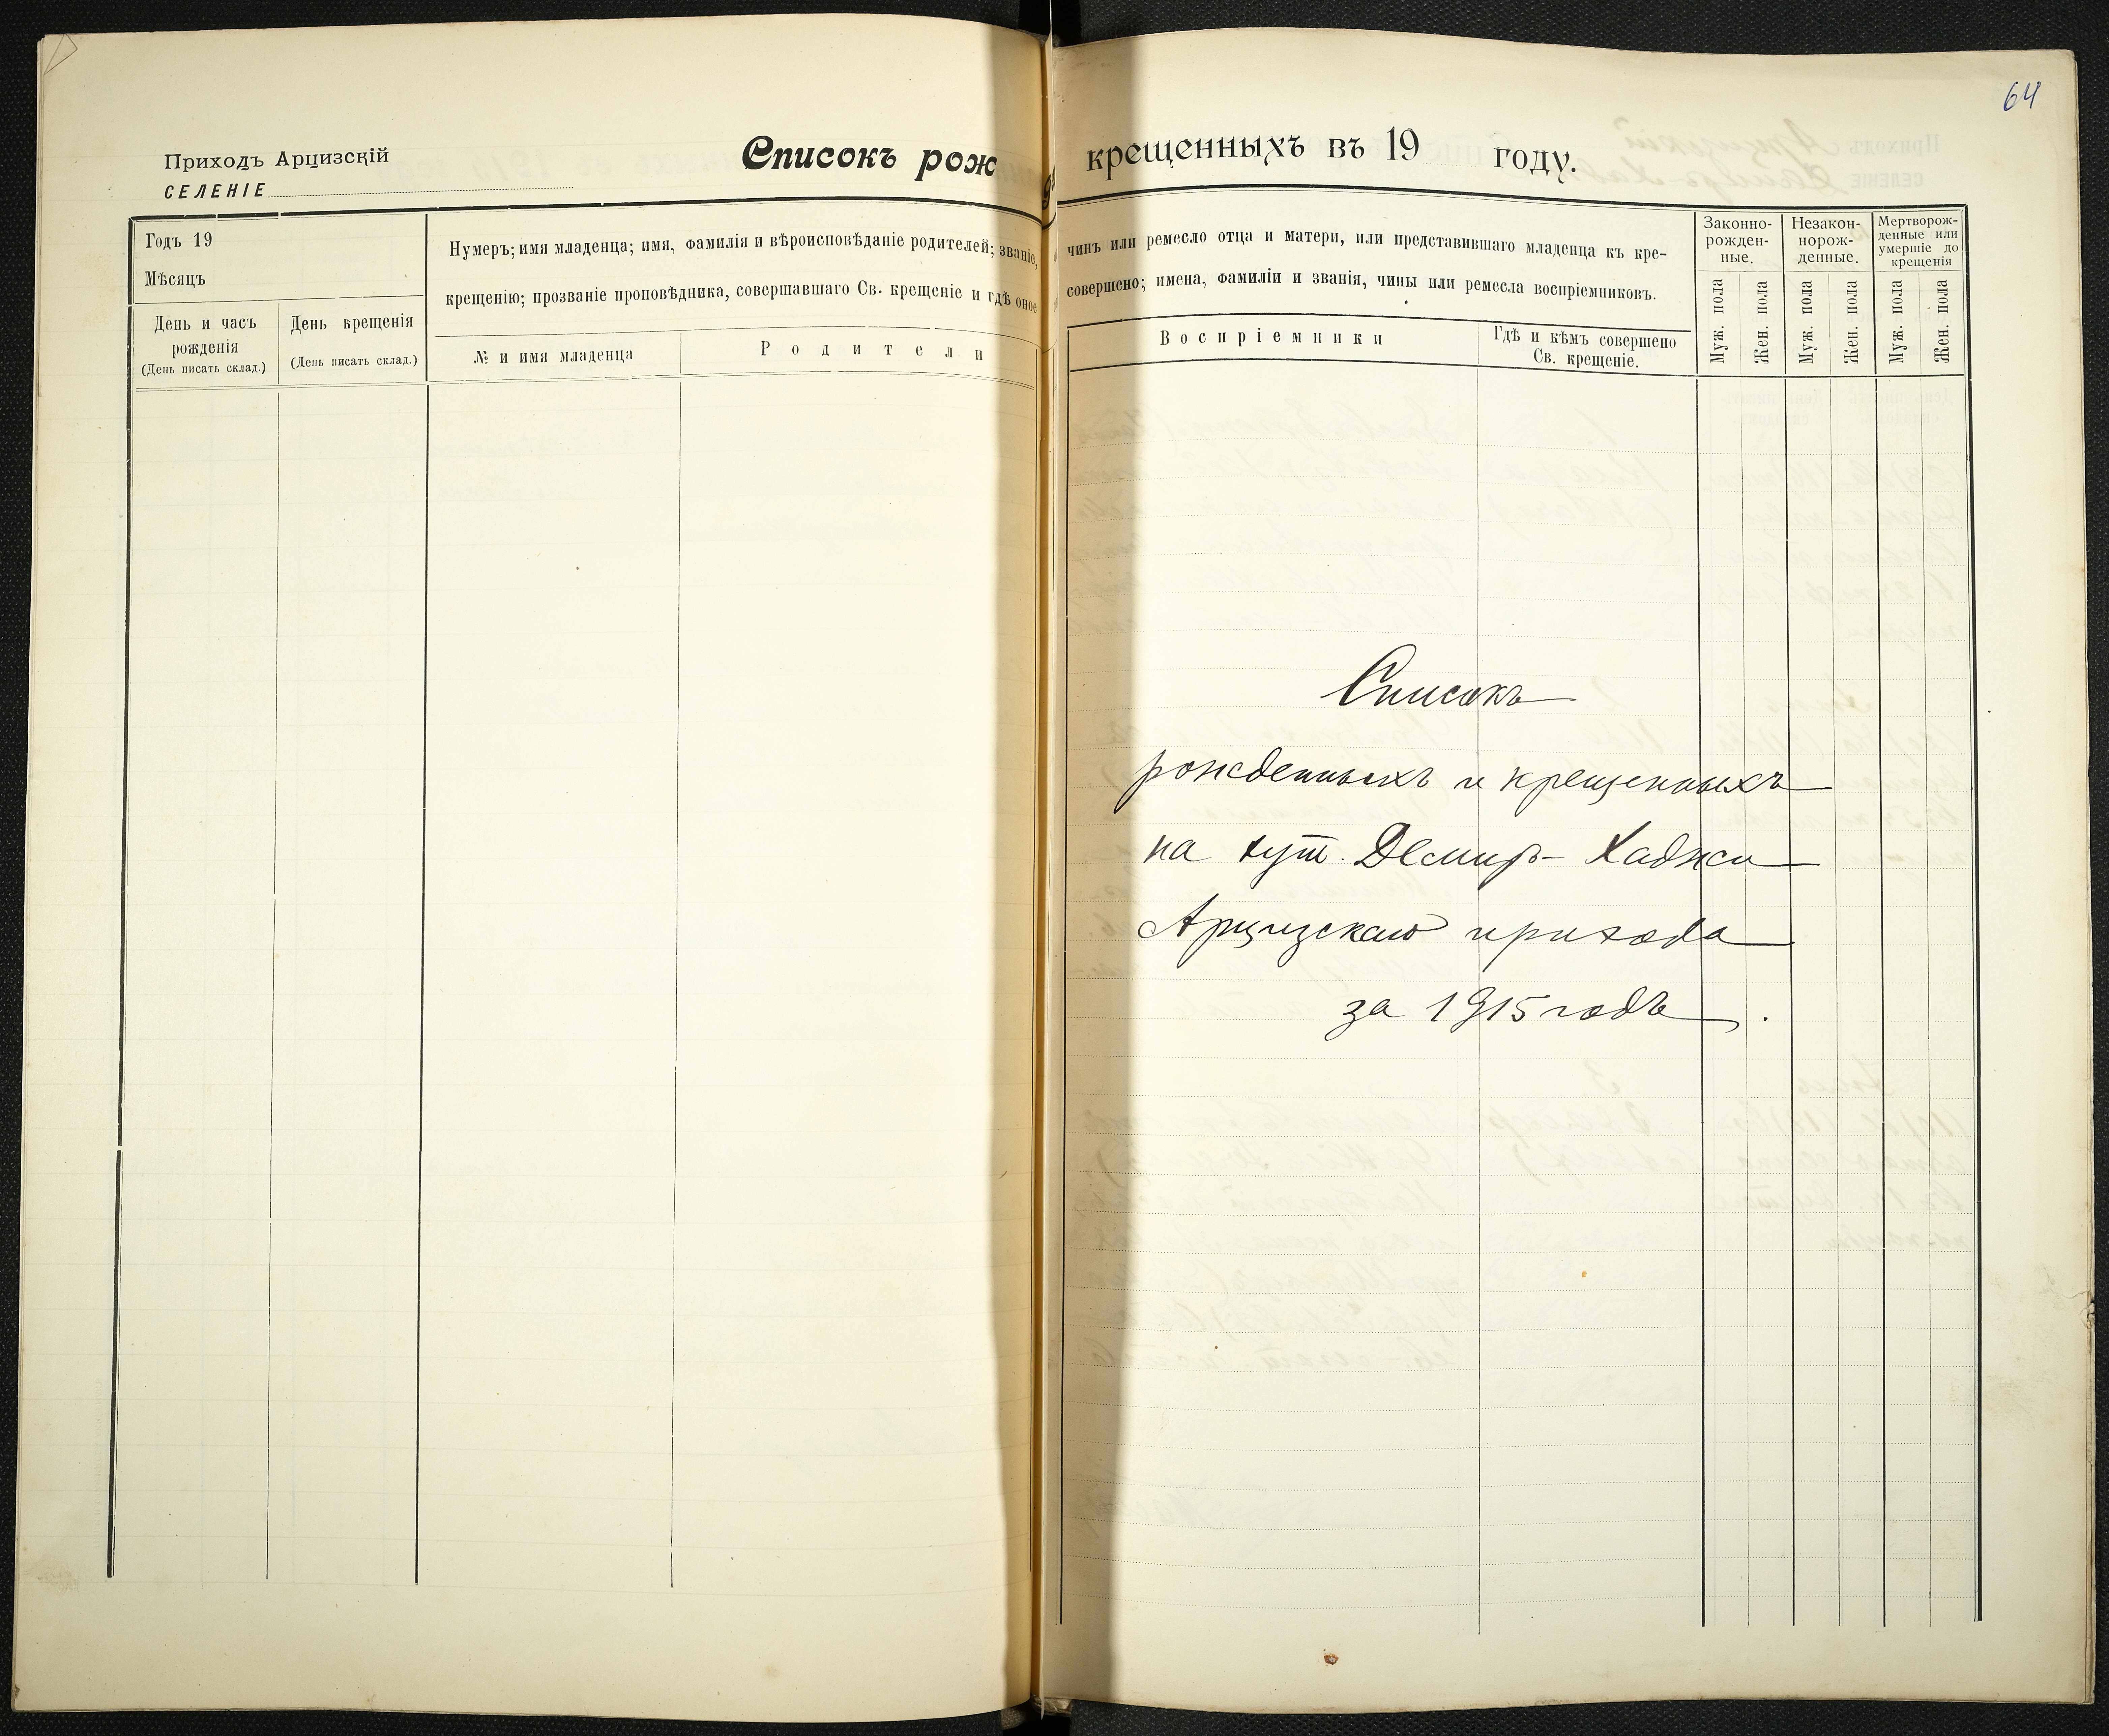 64
Приходъ Арцизскій
СЕЛЕНІЕ
Списокъ рож
крещенныхъ въ 19 году.
Годъ 19
Мѣсяцъ
День и часъ
рожденія
(День писать склад.)
День крещенія
(День писать склад.)
Нумеръ; имя младенца; имя, фамилія и вѣроисповѣданіе родителей; званіе,
крещенію; прозваніе проповѣдника, совершавшаго Св. крещеніе и гдѣ оное
№ и имя младенца
Родители
чинъ или ремесло отца и матери, или представившаго младенца къ кре-
совершено; имена, фамиліи и званія, чины или ремесла воспріемниковъ.
Воспріемники
Гдѣ и кѣмъ совершено
Св. крещеніе.
Законно-
рожден-
ные.
Незакон-
норож-
денные.
Мертворож-
денные или
умершіе до
крещенія
Муж. пола
Жен. пола
Муж. пола
Жен. пола
Муж. пола
Жен. пола
Списокъ
рожденныхъ и крещенныхъ
на хут. Демиръ-Хаджи
Арцизскаго прихода
за 1915 годъ.